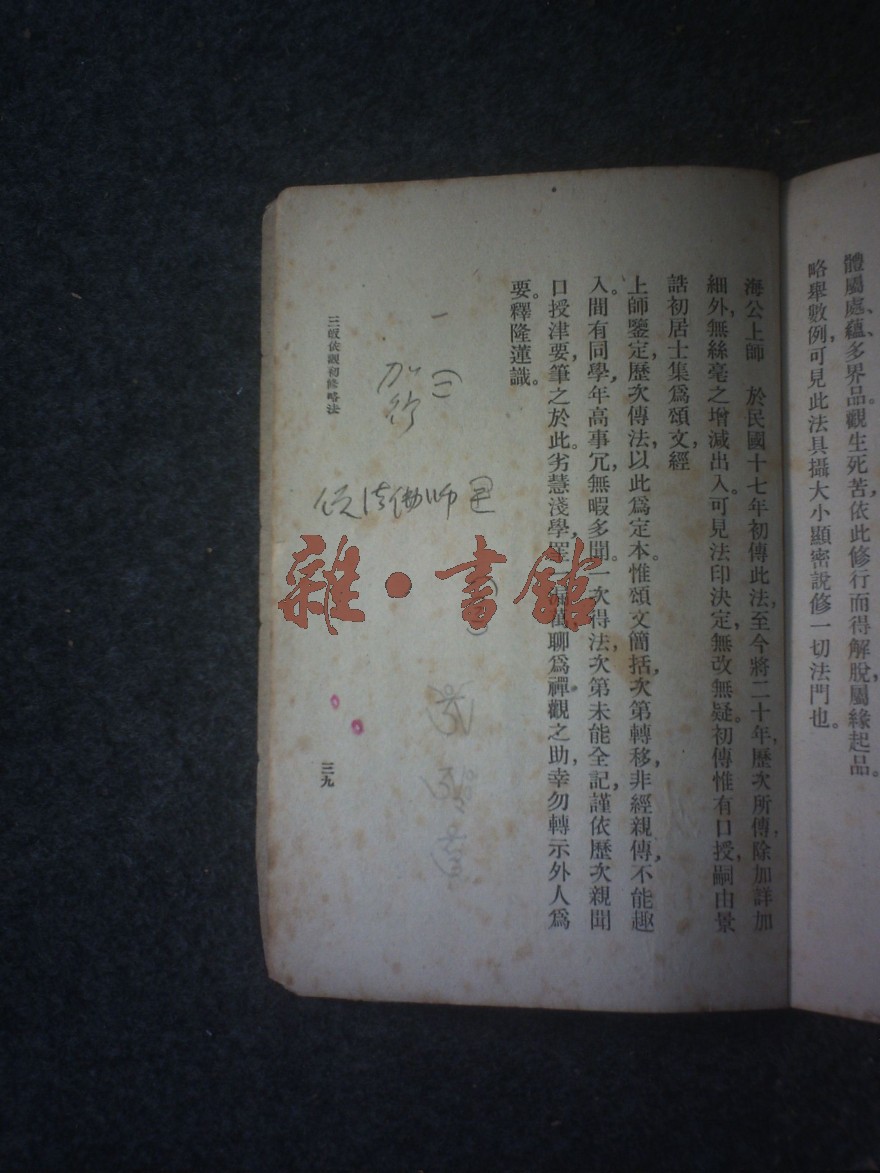 體屬處、蘊、多界品。觀生死苦、依此修行而得解脫、屬緣起品。
略舉數例、可見此法具攝大小顯密說修一切法門也。
海公上師　於民國十七年初傳此法、至今將二十年、歷次所傳、除加詳加
細外、無絲毫之增減出入。可見法印決定、無改無疑。初傳惟有口授、嗣由景
誥初居士集爲頌文、經
上師鑒定、歷次傳法、以此爲定本。惟頌文簡括、次第轉移、非經親傳、不能趣
入。間有同學、年高事冗、無暇多聞。一次得法、次第未能全記、謹依歷次親聞
口授津要、筆之於此。劣慧淺學、罣一漏萬、聊爲禪觀之助、幸勿轉示外人爲
要。釋隆蓮識。
一
三
加行
三皈依觀初修略法
三九
雜·書館